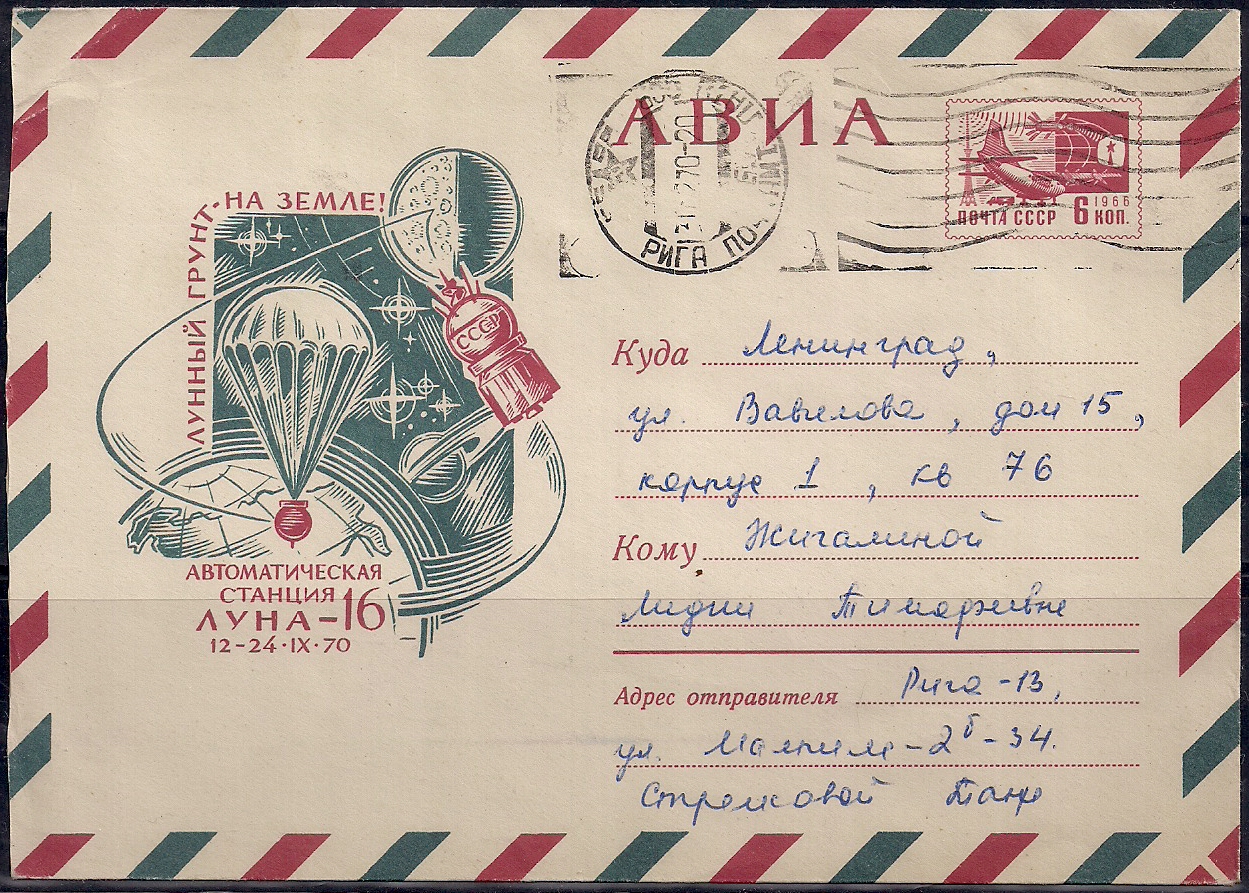 АВИА
РИГА ПОЧ
ПОЧТА СССР 6 КОП.
1966
ЛУННЫЙ ГРУНТ-НА ЗЕМЛЕ!
СССР
АВТОМАТИЧЕСКАЯ
СТАНЦИЯ
ЛУНА-16
12-24·IX·70
Куда Ленинград,
ул. Вавилова, дом 15,
корпус 1, кв 76
Кому Жигалиной
Лидии
Адрес отправителя Рига-13,
ул. -2б-34.
Стрелковой Тани